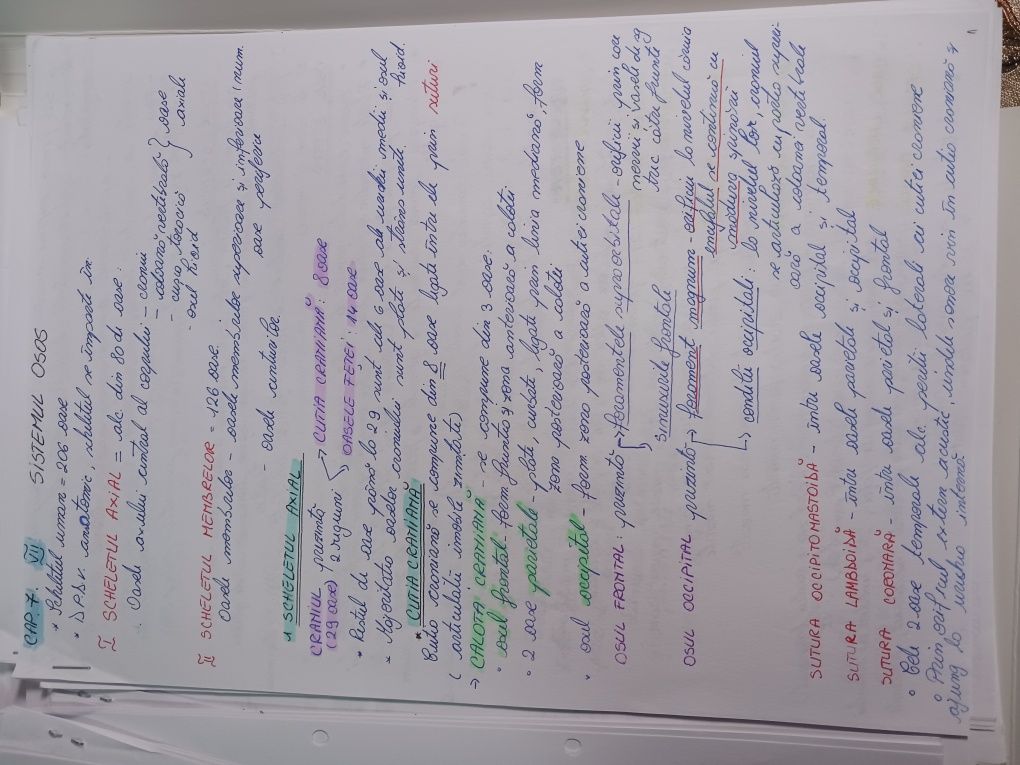 CAP. 7. VII SISTEMUL OSOS
* Scheletul uman = 206 oase
* D.P.d.v. anatomic, scheletul se împarte în:
I SCHELETUL AXIAL = alc. din 80 de oase:
Oasele axului central al corpului - craniu
- coloană vertebrală } oase
- cușca toracică axiale
- osul hioid
II SCHELETUL MEMBRELOR = 126 oase.
Oasele membrelor - oasele membrelor superioare și inferioare : num.
oase perifericе
- oasele centurilor.
1 SCHELETUL AXIAL
CRANIUL prezintă → CUTIA CRANIANĂ : 8 oase
(29 oase) 2 regiuni → OASELE FEȚEI : 14 oase
* Restul de oase până la 29 sunt cele 6 oase ale urechii medii și osul
hioid.
* Majoritatea oaselor craniului sunt plate și strâns unite
* CUTIA CRANIANĂ
Cutia craniană se compune din 8 oase legate între ele prin suturi
( articulații imobile zimțate)
→ CALOTA CRANIANĂ - se compune din 3 oase:
• osul frontal - fom fruntea și zona anterioară a calotei
• 2 oase parietale - plate, curbate, legate prin linia mediană, form
zona posterioară a calotei
• osul occipital - foom zona posterioară a cutiei craniene
OSUL FRONTAL : prezintă → foramentele supraorbitale - orificii prin care
nervii și vasele de sg
trec catre frunte
sinusurile frontale
OSUL OCCIPITAL prezintă → forament magnum - orificiu la nivelul căruia
encefalul se continuă cu
măduva spinării
→ condilii occipitali : la nivelul lor, craniul
se articulează cu partea superi-
oară a coloanei vertebrale
SUTURA OCCIPITOMASTOIDĂ - între oasele occipital și temporal
SUTURA LAMBDOIDĂ - între oasele parietale și occipital
SUTURA CORONARĂ - între oasele parietal și frontal
• Cele 2 oase temporale alc. pereții laterali ai cutiei craniene
• Prin orificiul extern acustic, undele sonore vin în cutia craniană și
ajung la urechea internă
1